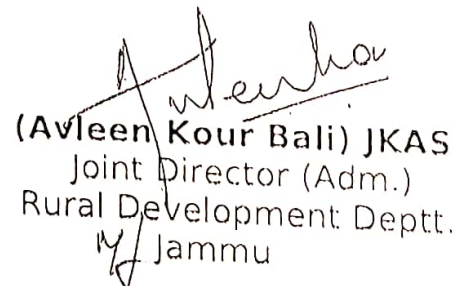 (Avleen Kour Bali) JKAS
Joint Director (Adm.)
Rural Development Deptt.
Jammu